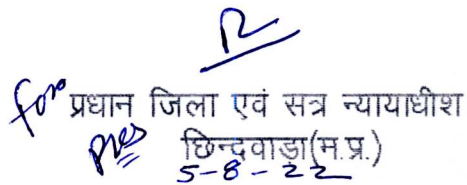 for प्रधान जिला एवं सत्र न्यायाधीश
छिन्दवाड़ा(म.प्र.)
5-8-22